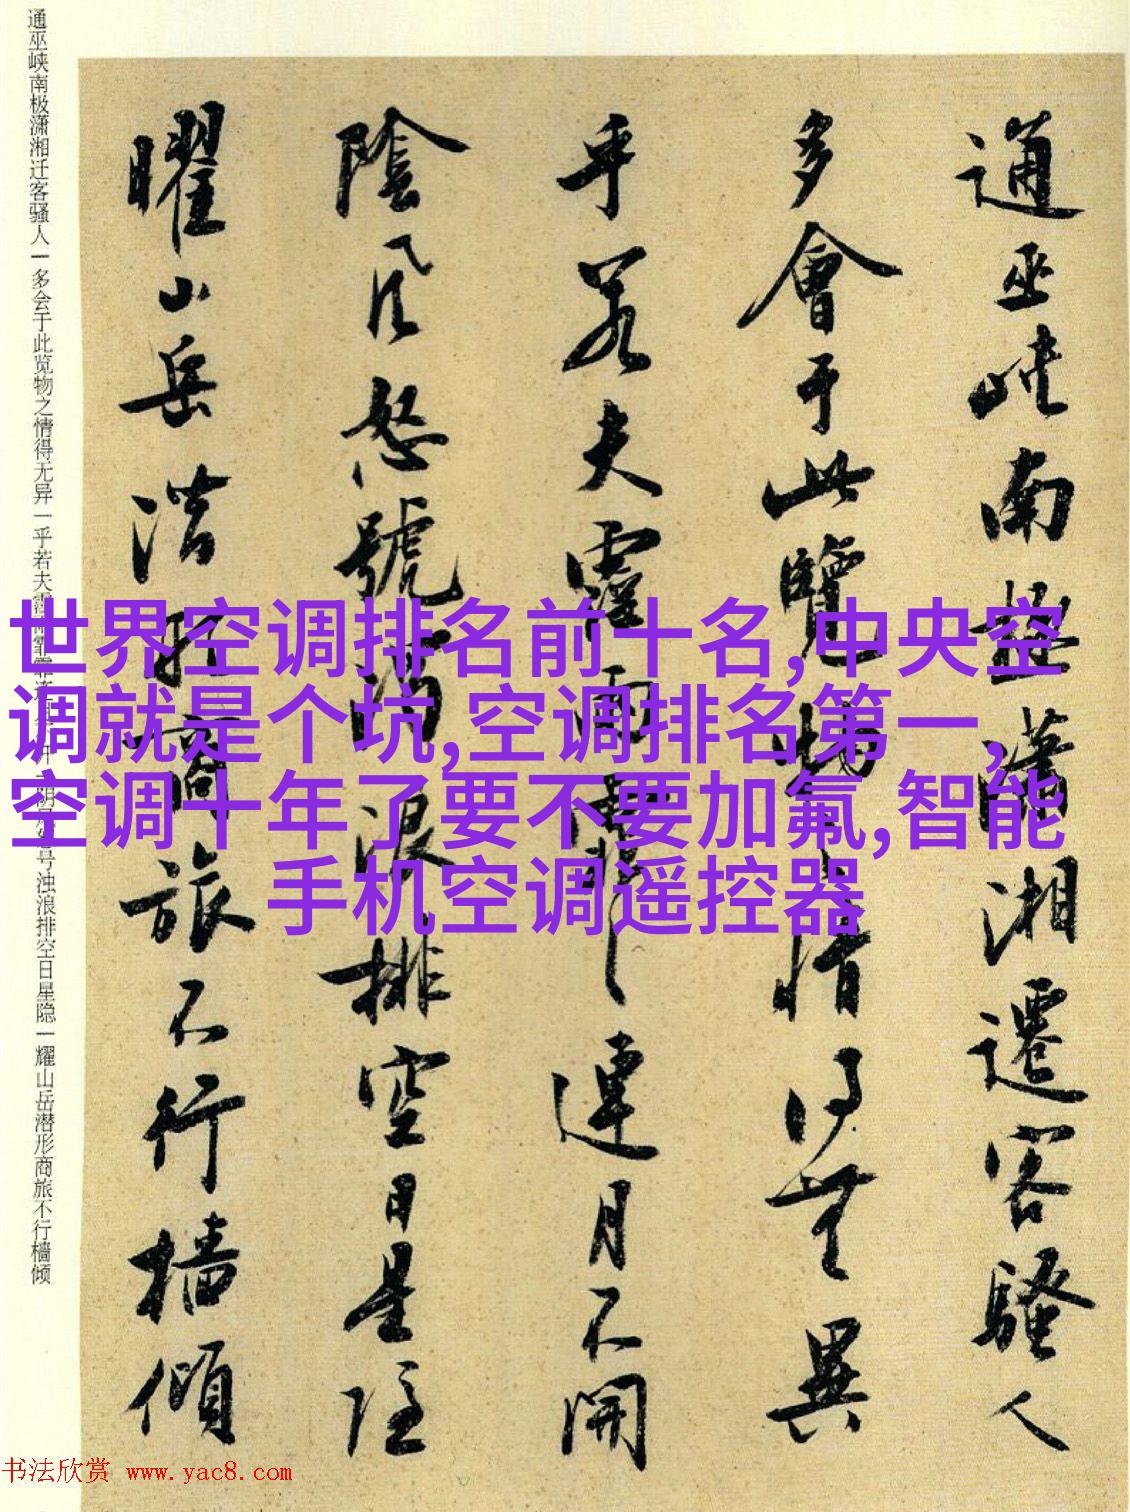 通巫峡南極瀟湘遷客騷人
多會于此覽物之情得無異
乎若夫霪雨霏霏連月不開
陰風怒號濁浪排空日星隱
曜山岳潜形商旅不行檣傾
通巫峡南极潇湘迁客骚人一多会于此览物之情得无异一乎若夫霪雨霏霏连月不开一阴风怒号浊浪排空日星隐一耀山岳潜形商旅不行樯倾
世界空调排名前十名,中央空
调就是个坑,空调排名第一,
空调十年了要不要加氟,智能
手机空调遥控器
书法欣赏 www.yac8.com